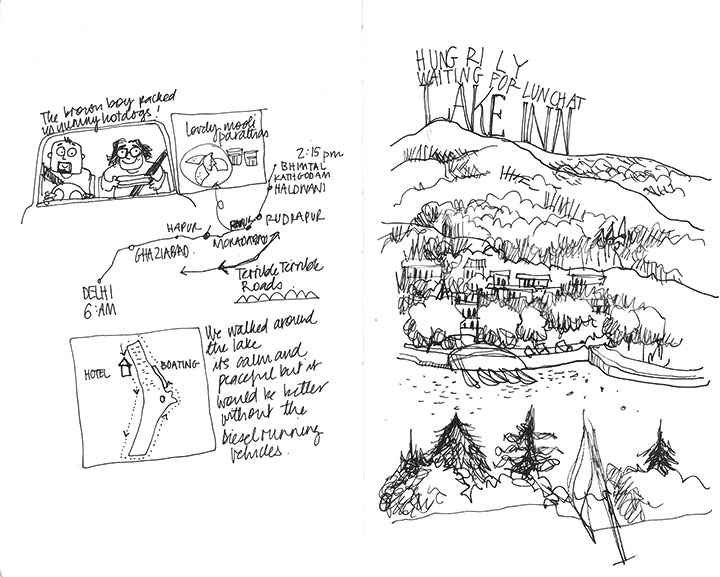 The brown boy packed
us yummy hotdogs!
lovely mooli
parathas
2:15 pm
BHIMTAL
KATHGODAM
HALDWANI
RUDRAPUR
MORADABAD
HAPUR
GHAZIABAD
DELHI
6:AM
Terrible Terrible
Roads
HOTEL
BOATING
We walked around
the lake
its calm and
peaceful but it
would be better
without the
diesel running
vehicles.
HUNGRILY
WAITING FOR LUNCH AT
LAKE INN